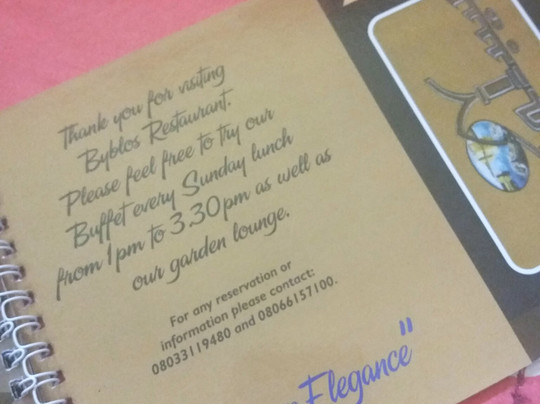 Thank you for visiting
Byblos Restaurant.
Please feel free to try our
Buffet every Sunday lunch
from 1pm to 3.30pm as well as
our garden lounge.
For any reservation or
information please contact:
08033119480 and 08066157100.
Elegance"